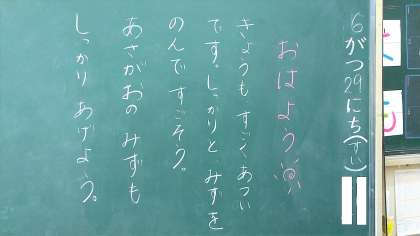 6がつ29にち(すい)
おはよう
きょうも、すごくあつい
です。しっかりと みずを
のんですごそう。
あさがおの みずも
しっかり あげよう。